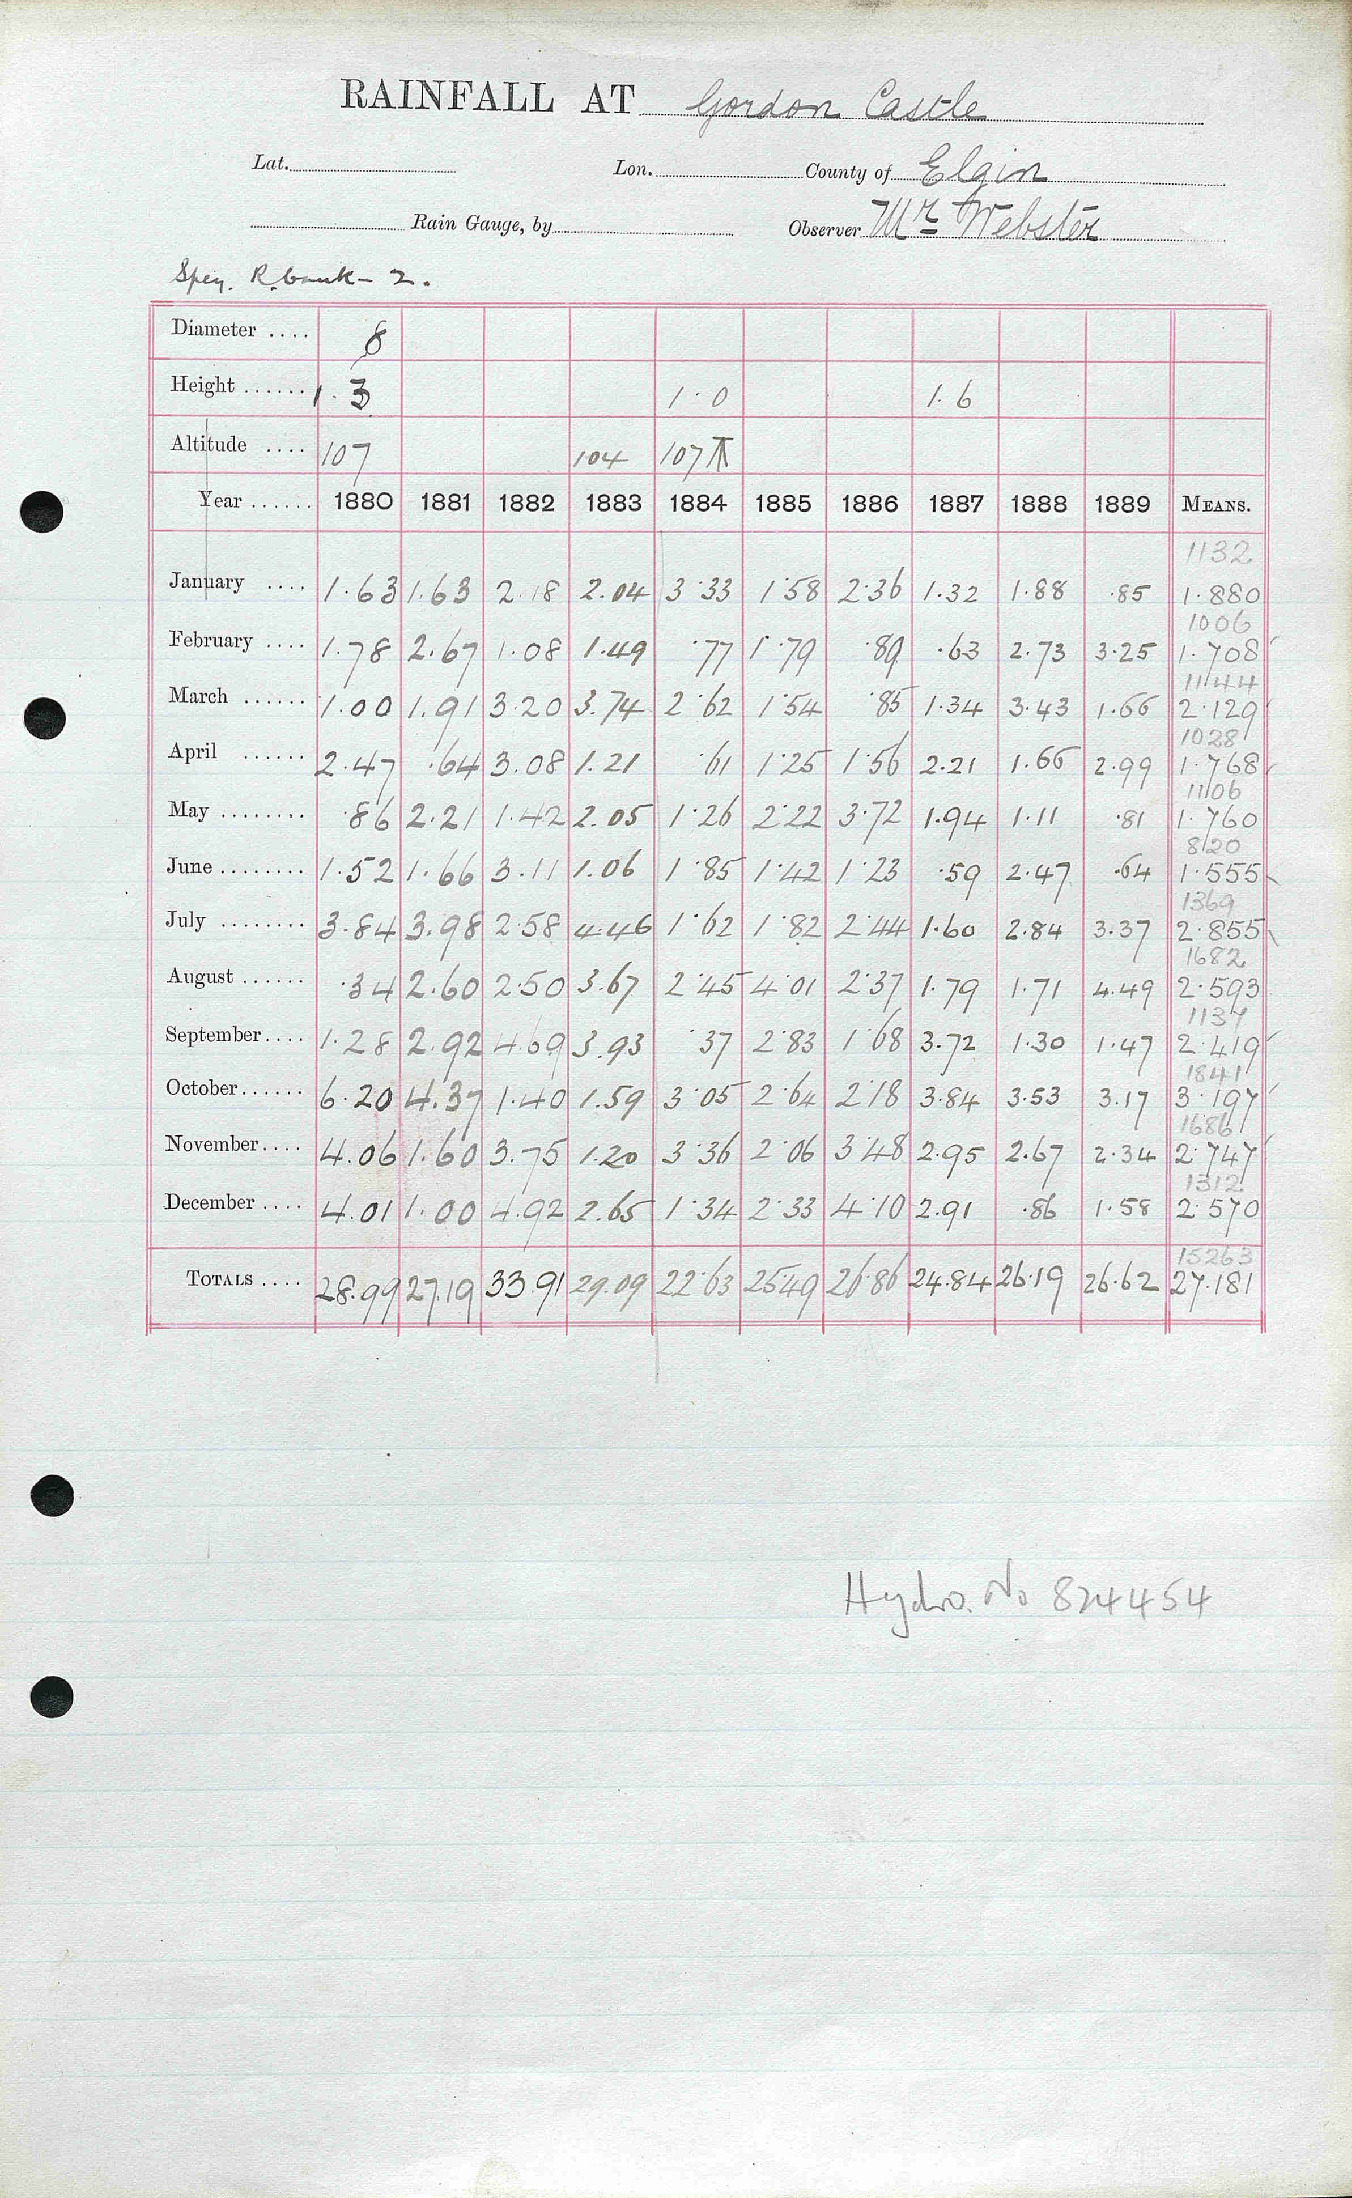 RAINFALL AT Gordon Castle
Lat. Lon. County of Elgin
Rain Gauge, by Observer Mr Webster
Spey. R. bank - 2.
Diameter .... 8
Height ...... 1.3 1.0 1.6
Altitude .... 107 104 107 T
Year ...... 1880 1881 1882 1883 1884 1885 1886 1887 1888 1889 MEANS.
1132
January .... 1.63 1.63 2.18 2.04 3.33 1.58 2.36 1.32 1.88 .85 1.880
1006
February .... 1.78 2.67 1.08 1.49 .77 1.79 .89 .63 2.73 3.25 1.708
1144
March ...... 1.00 1.91 3.20 3.74 2.62 1.54 .85 1.34 3.43 1.66 2.129
1028
April ...... 2.47 .64 3.08 1.21 .61 1.25 1.56 2.21 1.66 2.99 1.768
1106
May ........ .86 2.21 1.42 2.05 1.26 2.22 3.72 1.94 1.11 .81 1.760
820
June ........ 1.52 1.66 3.11 1.06 1.85 1.42 1.23 .59 2.47 .64 1.555
1369
July ........ 3.84 3.98 2.58 4.46 1.62 1.82 2.44 1.60 2.84 3.37 2.855
1682
August ...... .34 2.60 2.50 3.67 2.45 4.01 2.37 1.79 1.71 4.49 2.593
1137
September .... 1.28 2.92 4.69 3.93 .37 2.83 1.68 3.72 1.30 1.47 2.419
1841
October ...... 6.20 4.37 1.40 1.59 3.05 2.64 2.18 3.84 3.53 3.17 3.197
1686
November .... 4.06 1.60 3.75 1.20 3.36 2.06 3.48 2.95 2.67 2.34 2.747
1312
December .... 4.01 1.00 4.92 2.65 1.34 2.33 4.10 2.91 .86 1.58 2.570
15263
TOTALS .... 28.99 27.19 33.91 29.09 22.63 25.49 26.86 24.84 26.19 26.62 27.181
Hydro. No 824454